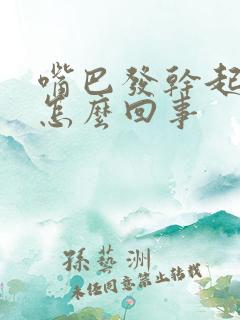 嘴巴發幹起
怎麼回事
孫藝洲
未经同意禁止转载